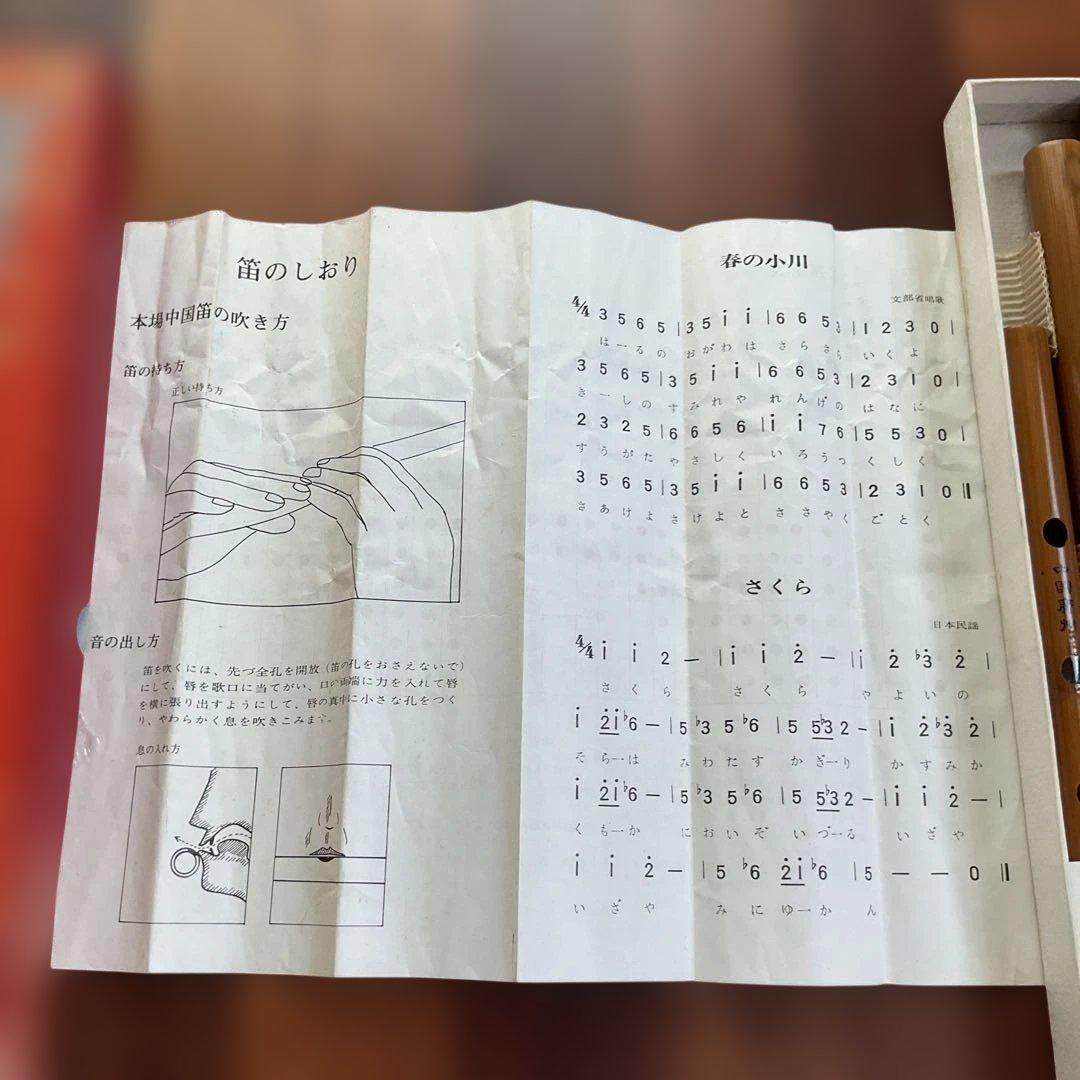 笛のしおり
本場中国笛の吹き方
笛の持ち方
正しい持ち方
音の出し方
笛を吹くには、先づ全孔を開放（笛の孔をおさえないで）
にして、唇を歌口に当てがい、口の両端に力を入れて唇
を横に張り出すようにして、唇の真中に小さな孔をつく
り、やわらかく息を吹きこみます。
息の入れ方
春の小川
文部省唱歌
4/4 3 5 6 5 | 3 5 i i | 6 6 5 3 | 1 2 3 0 |
はーるの おがわは さらさら いくよ
3 5 6 5 | 3 5 i i | 6 6 5 3 | 2 3 1 0 |
きーしの すみれや れんげの はなに
2 3 2 5 | 6 6 5 6 | i i 7 6 | 5 5 3 0 |
すうがたや さしく いろうつ くしく
3 5 6 5 | 3 5 i i | 6 6 5 3 | 2 3 1 0 ‖
さあけよ さけよと ささやく ごとく
さくら
日本民謡
4/4 i i 2̇ — | i i 2̇ — | i 2̇ ♭3̇ 2̇ |
さくら さくら やよいの
i 2̇i ♭6 — | 5 ♭3 5 ♭6 | 5 5♭3 2 — | i 2̇ ♭3̇ 2̇ |
そらーは みわたす かぎーり かすみか
i 2̇i ♭6 — | 5 ♭3 5 ♭6 | 5 5♭3 2 — | i i 2̇ — |
くもーか においぞ いづーる いざや
i i 2̇ — | 5 ♭6 2̇i ♭6 | 5 — — 0 ‖
いざや みにゆーかん
中国蘇州